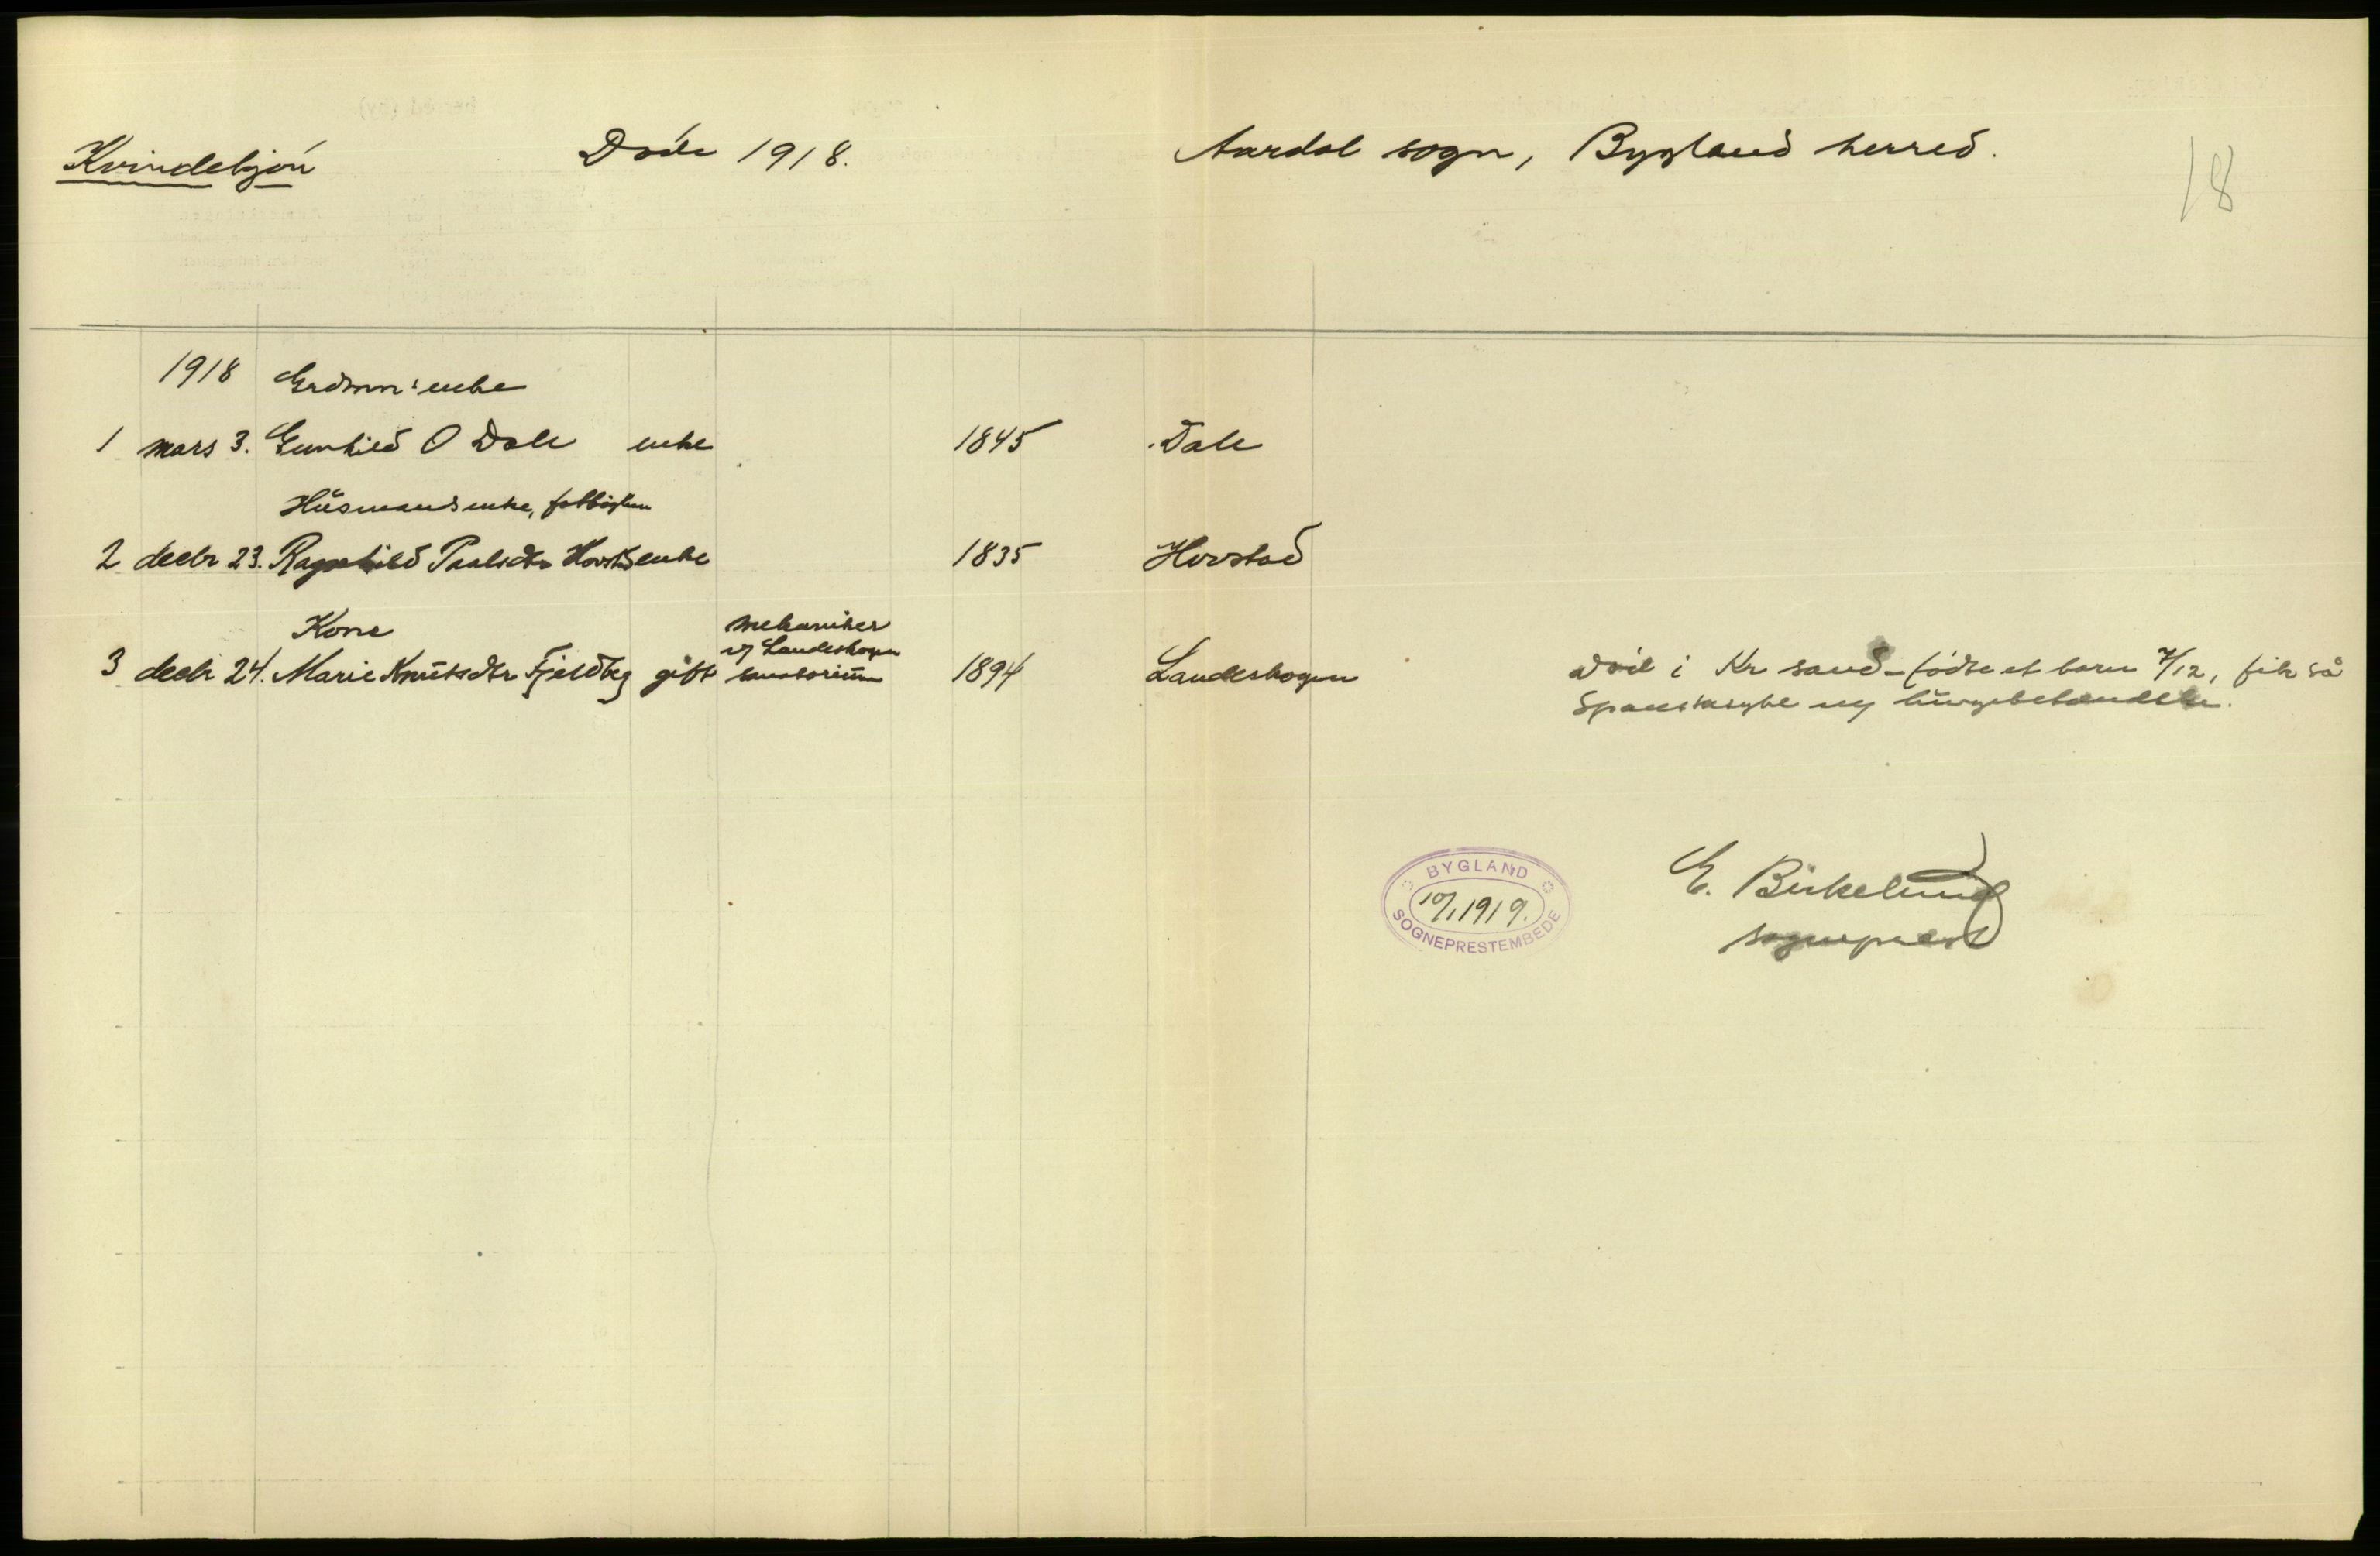 Kvindekjøn Døde 1918. Aardal sogn, Bygland herred.
18
1918 Grdmm's enke
1 mars 3. Gunhild O Dale enke 1845 Dale
Husmandsenke, fattiglem
2 decbr 23. Ragnhild Paalsdtr Hovstd enke 1835 Hovstad
Kone mekaniker
v/ Landeskogen
3 decbr 24. Marie Knutsdtr Fjeldbg gift sanatorium 1894 Landeskogen Død i Kr sand - fødte et barn 7/12, fik så
Spanskesyke og lungebetændelse.
BYGLAND
10/1 1919.
SOGNEPRESTEMBEDE
E. Birkelund
sogneprest